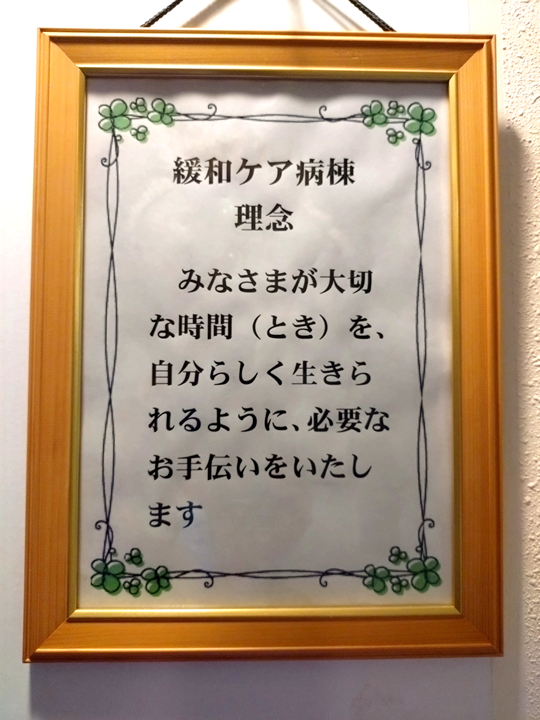 緩和ケア病棟
理念
みなさまが大切
な時間（とき）を、
自分らしく生きら
れるように、必要な
お手伝いをいたし
ます